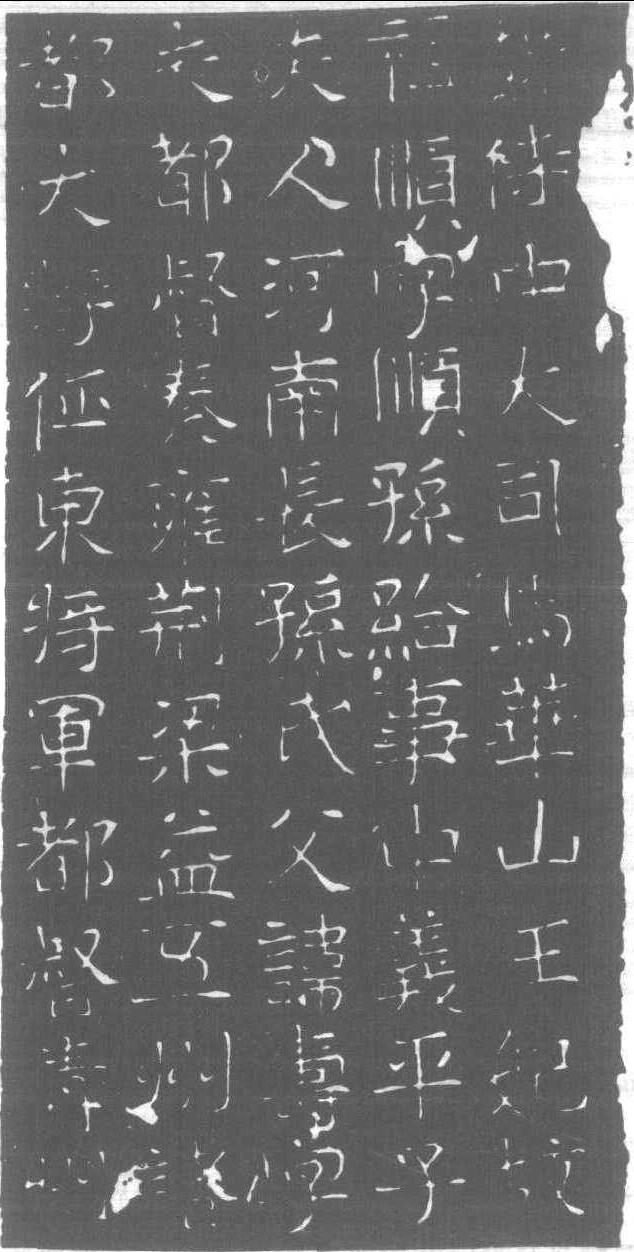 侍中大司馬華山王妃故
祖順字順孫給事中義平子
夫人河南長孫氏父諱壽
都督秦雍荊梁益五州諸
都大征東將軍都督青州